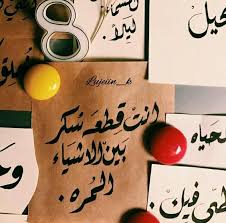 ليلاً.
Lujein_k
انت قطعة سُكر
بين الاشياء
المُره .
الحياه
فيك .